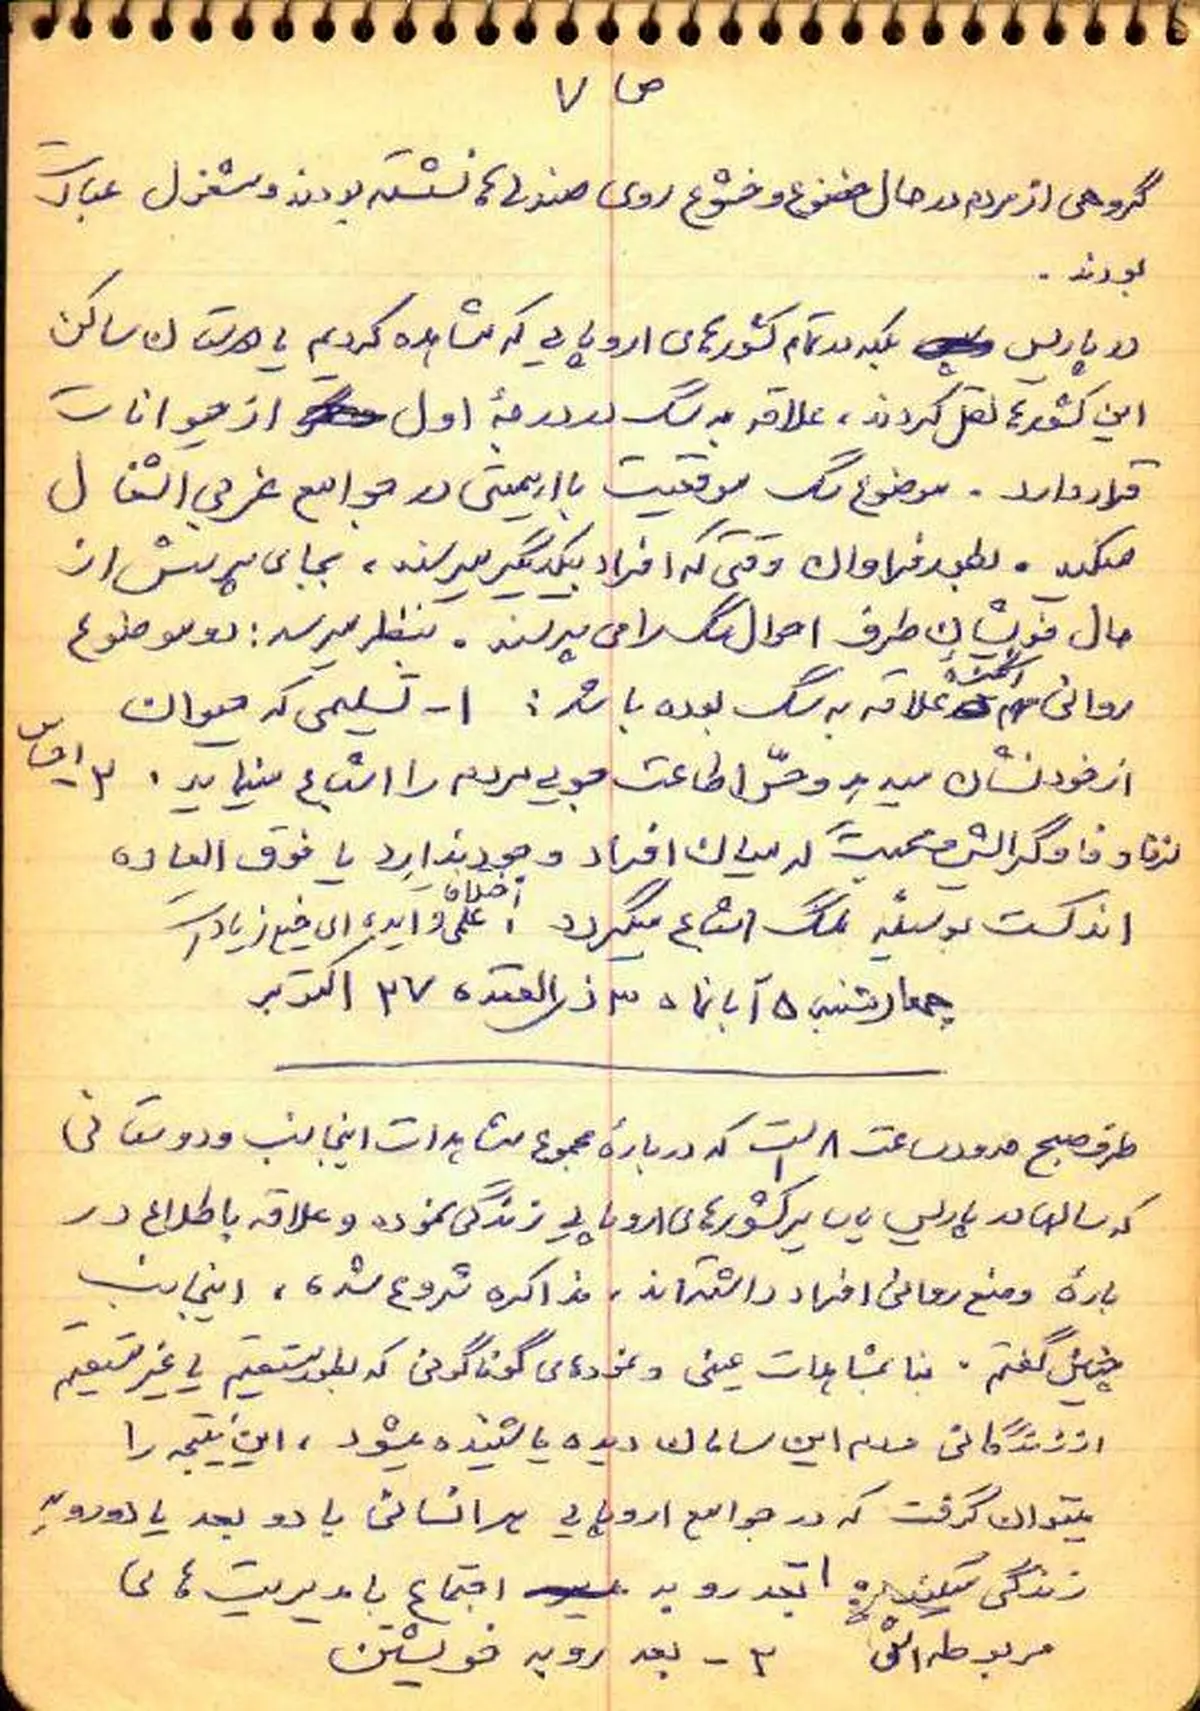 ص ۷
گروهی از مردم در حال خضوع و خشوع روی صندلی‌ها نشسته بودند و مشغول عبادت
بودند .
در پاریس بلکه در تمام کشورهای اروپایی که مشاهده کردیم یا دوستان ساکن
این کشورها نقل کردند ، علاقه به سگ در درجهٔ اول از حیوانات
قرار دارد . موضوع سگ موقعیت با اهمیتی در جوامع غربی اشغال
میکند . بطور فراوان وقتی که افراد بیکدیگر میرسند ، بجای پرسش از
حال خویشان طرف احوال سگ را می پرسند . بنظر میرسد : دو موضوع
روانی علاقه به سگ بوده باشد : ۱ - تسلیمی که حیوان
از خود نشان میدهد و حسّ اطاعت جویی مردم را اشباع مینماید . ۲ احساس
وفا و گرایش و محبت که میان افراد وجود ندارد یا فوق العاده
اندکست بوسیلهٔ سگ اشباع میگردد . اخلاق علمی و ایده ای خیلی زیاد است
چهارشنبه ۵ آبانماه ۳ ذی‌القعده ۲۷ اکتبر
طرف صبح حدود ساعت ۸ است که دربارهٔ مجموع مشاهدات اینجانب و دوستانی
که سالها در پاریس یا سایر کشورهای اروپایی زندگی نموده و علاقه باطلاع در
بارهٔ وضع روانی افراد داشته‌اند ، مذاکره شروع شد ، اینجانب
چنین گفتم . بنا بمشاهدات عینی و نمودهای گوناگونی که بطور مستقیم یا غیر مستقیم
از زندگانی مردم این سامان دیده یا شنیده میشود ، این نتیجه را
میتوان گرفت که در جوامع اروپایی هر انسانی با دو بعد یا دو رویه
زندگی میکند ۱ بعد رو به اجتماع با مدیریت های
مربوطه اش ۲ - بعد رو به خویشتن